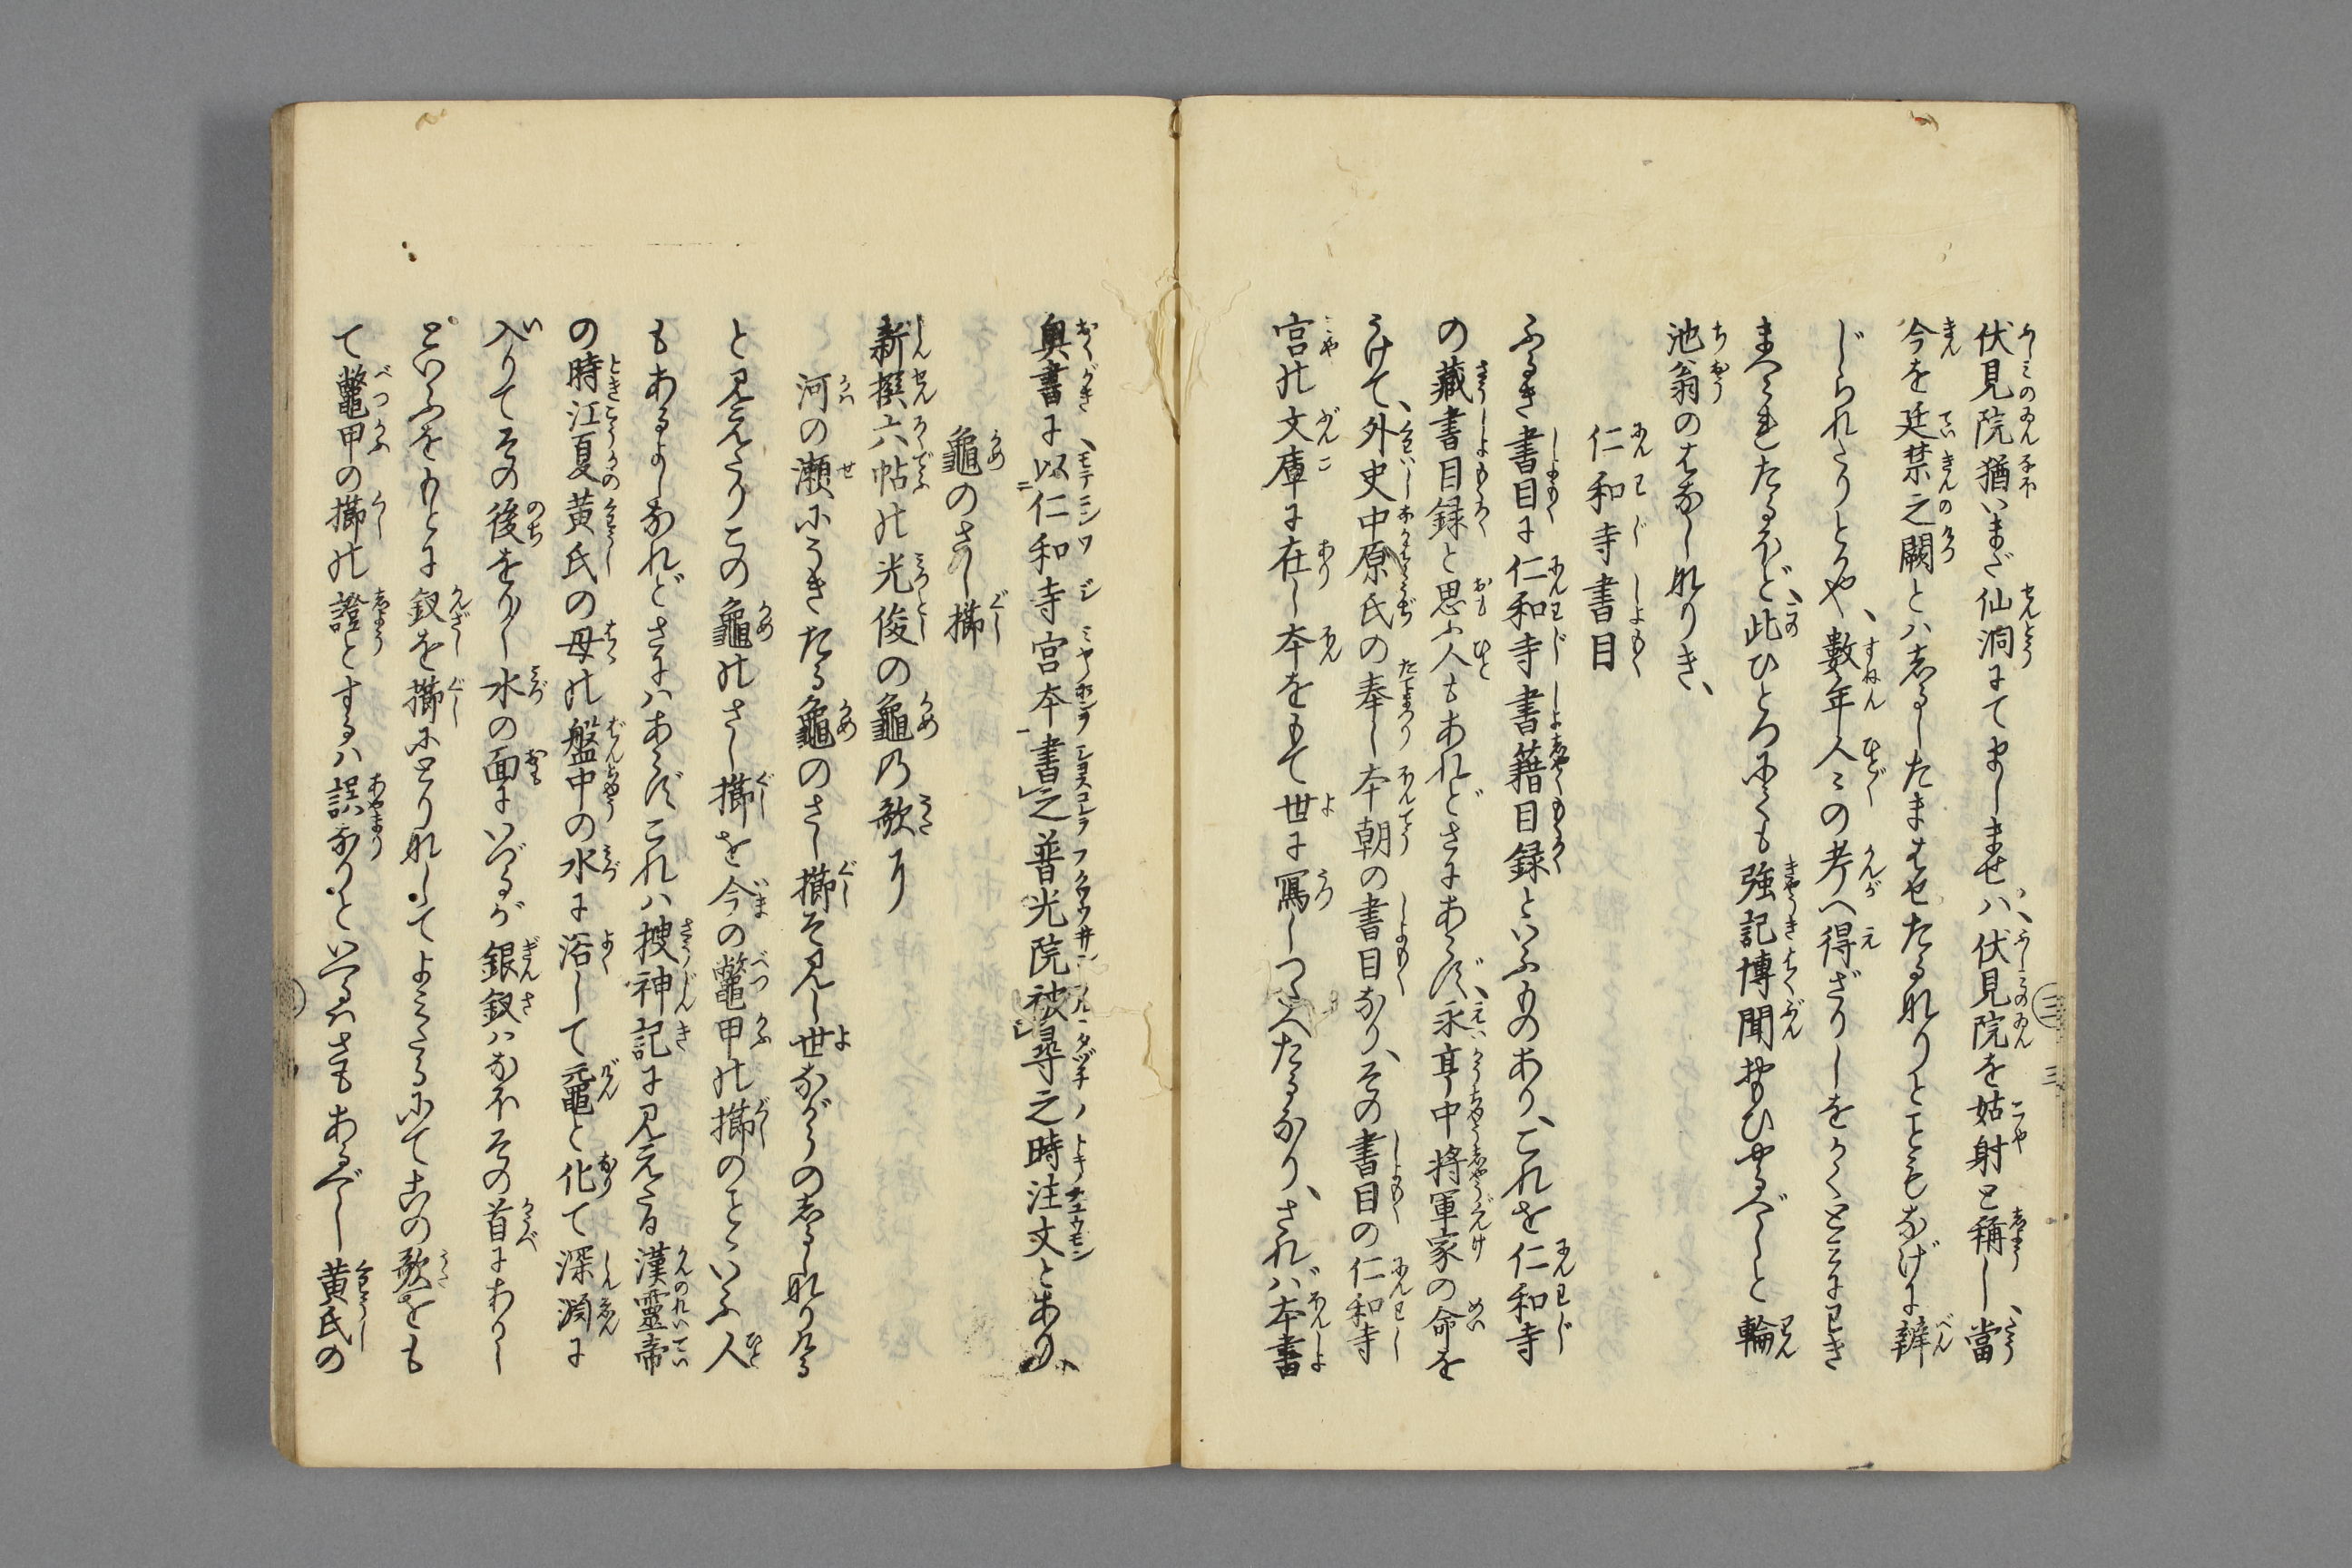 伏見院猶いまだ仙洞にてましませバ、伏見院を姑射と稱し、當
今を廷禁之闕とハしるしたまはせたる也けりとこともなげに辨
じられたりとかや、數年人々の考へ得ざりしをかくとみにわき
まへられたるほど、此ひところにても強記博聞おもひやるべしと輪
池翁のはなし也りき、
仁和寺書目
ふるき書目に仁和寺書籍目録といふものあり、これを仁和寺
の藏書目録と思ふ人もあれどさにあらず、永享中将軍家の命を
うけて、外史中原氏の奉し本朝の書目なり、その書目の仁和寺
宮の文庫に在し本をもて世に寫しつたへたるなり、されバ本書
奥書に、以仁和寺宮本書之普光院被尋之時注文とあり、
龜のさし櫛
新撰六帖の光俊の龜乃歌に
河の瀬にうきたる龜のさし櫛そ見し世ながらのしるし也ける
と見えたりこの龜のさし櫛を今の鼈甲の櫛のことゝいふ人
もあるよしなれどさにハあらずこれハ搜神記に見えたる漢靈帝
の時江夏黄氏の母の盤中の水に浴して黿と化て深淵に
入りてその後をり〳〵水の面にいづるが銀釵ハなほその首にありし
といふをもとに釵を櫛にとりなしてよミたるにてこの歌をも
て鼈甲の櫛の證とするハ誤なりといへるハさもあるべし黄氏の
三
三